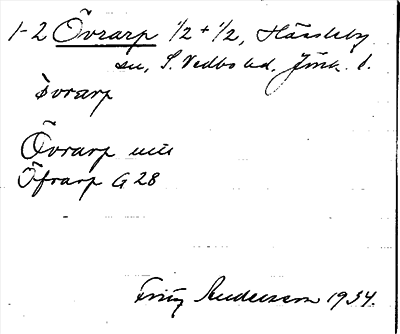 1-2 Övrarp 1/2 + 1/2, Hässleby
sn, S. Vedbo hd. Jönk. l.
òvrarp
Övrarp
Öfrarp G 28
Andersson 1934.